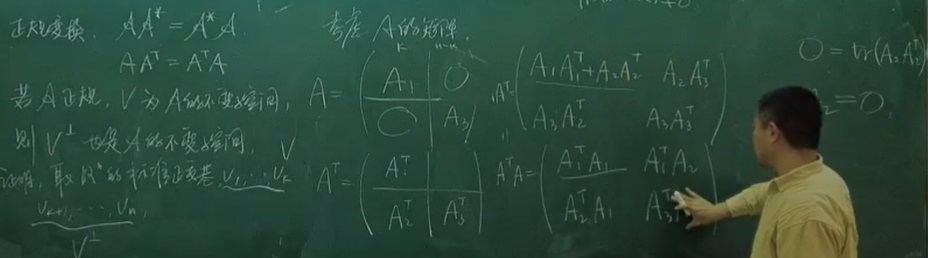 正规变换. 𝒜𝒜* = 𝒜*𝒜.
AAᵀ = AᵀA
若 𝒜 正规, V 为 𝒜 的不变子空间,
则 V^⊥ 也是 𝒜 的不变子空间, V
证明, 取 ℝⁿ 的标准正交基, v₁, ⋯, v_k
v_{k+1}, ⋯, v_n,
V^⊥
考虑 𝒜 的矩阵.
k n-k
A = ( A₁ | 0 ; 0 | A₃ )
Aᵀ = ( A₁ᵀ | ; A₂ᵀ | A₃ᵀ )
AAᵀ = ( A₁A₁ᵀ + A₂A₂ᵀ A₂A₃ᵀ ; A₃A₂ᵀ A₃A₃ᵀ )
||
AᵀA = ( A₁ᵀA₁ A₁ᵀA₂ ; A₂ᵀA₁ A₃ᵀ
0 = tr(A₂A₂ᵀ)
₂ = 0,